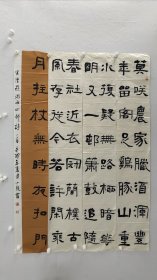 莫咲農家臘酒渾豐
年留客足雞豚山重
水複疑無路柳暗花
明又一邨簫鼓追隨
春社近衣冠簡樸古
風存從今若許閑乘
月拄杖無時夜扣門